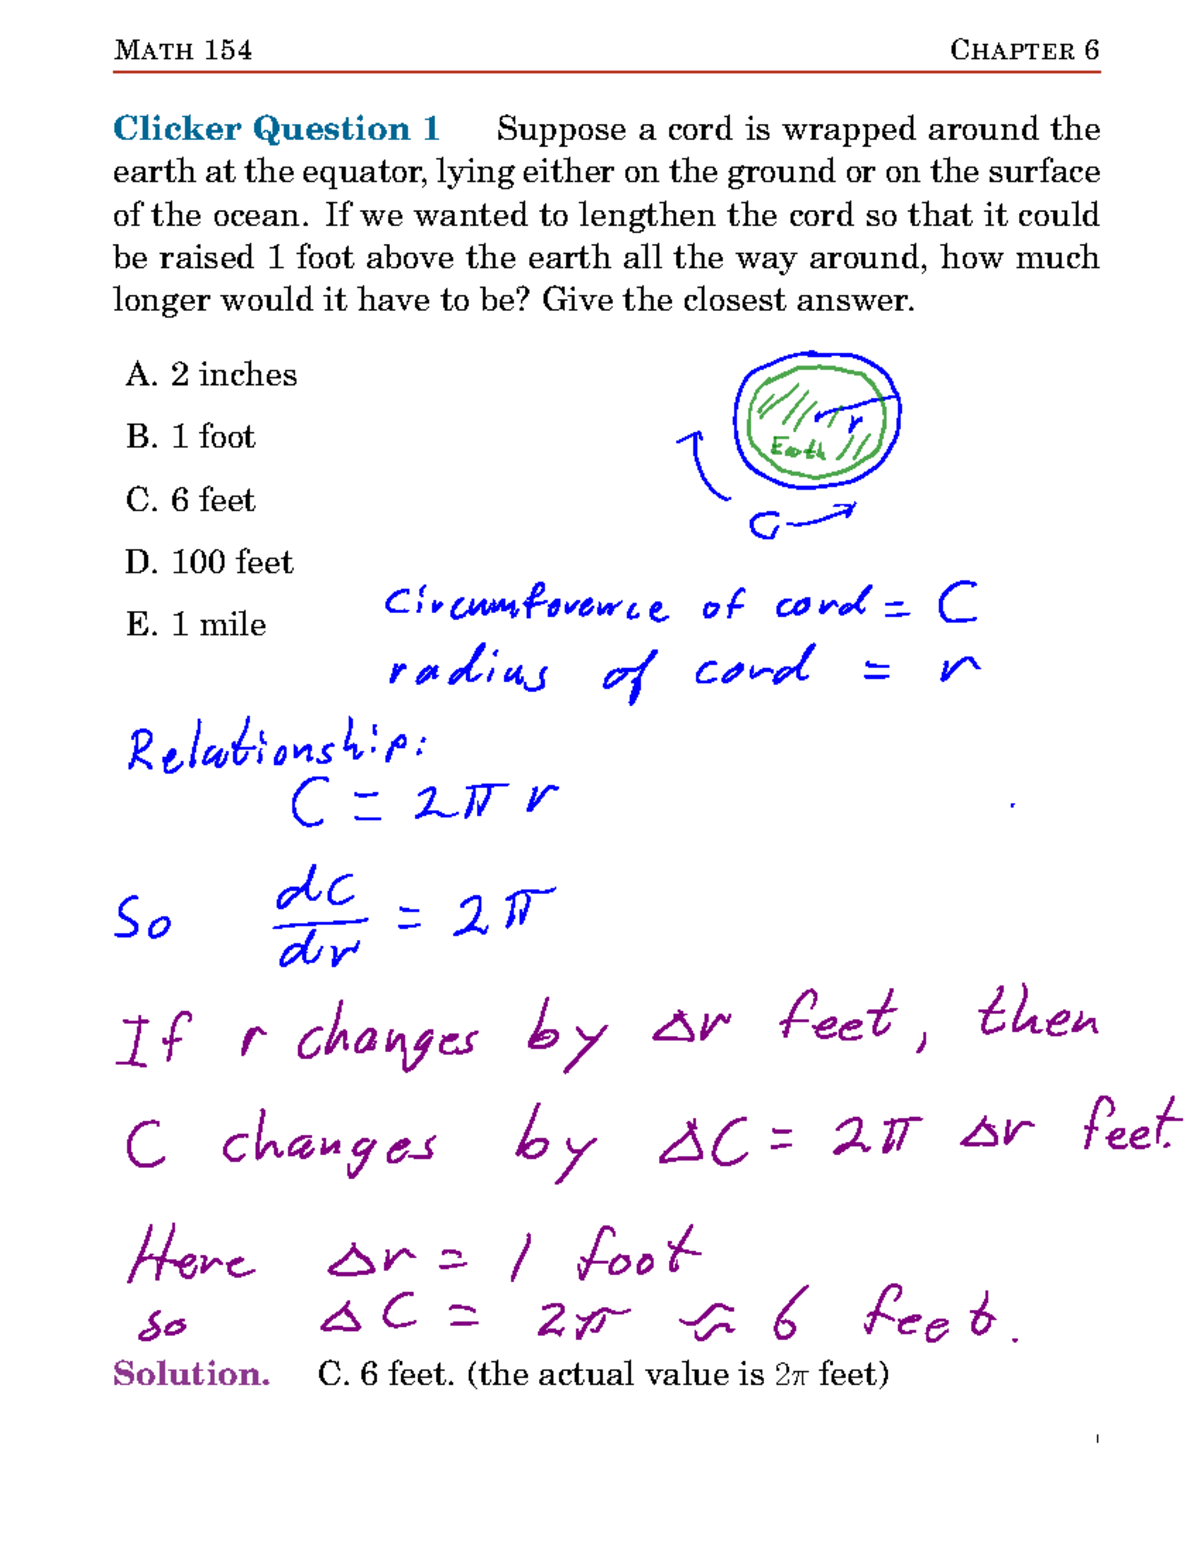 MATH 154 CHAPTER 6
Clicker Question 1 Suppose a cord is wrapped around the
earth at the equator, lying either on the ground or on the surface
of the ocean. If we wanted to lengthen the cord so that it could
be raised 1 foot above the earth all the way around, how much
longer would it have to be? Give the closest answer.
A. 2 inches
B. 1 foot
C. 6 feet
D. 100 feet
E. 1 mile
r
Earth
C
Circumference of cord = C
radius of cord = r
Relationship:
C = 2π r
So dC/dr = 2π
If r changes by Δr feet, then
C changes by ΔC = 2π Δr feet.
Here Δr = 1 foot
so ΔC = 2π ≈ 6 feet.
Solution. C. 6 feet. (the actual value is 2π feet)
1